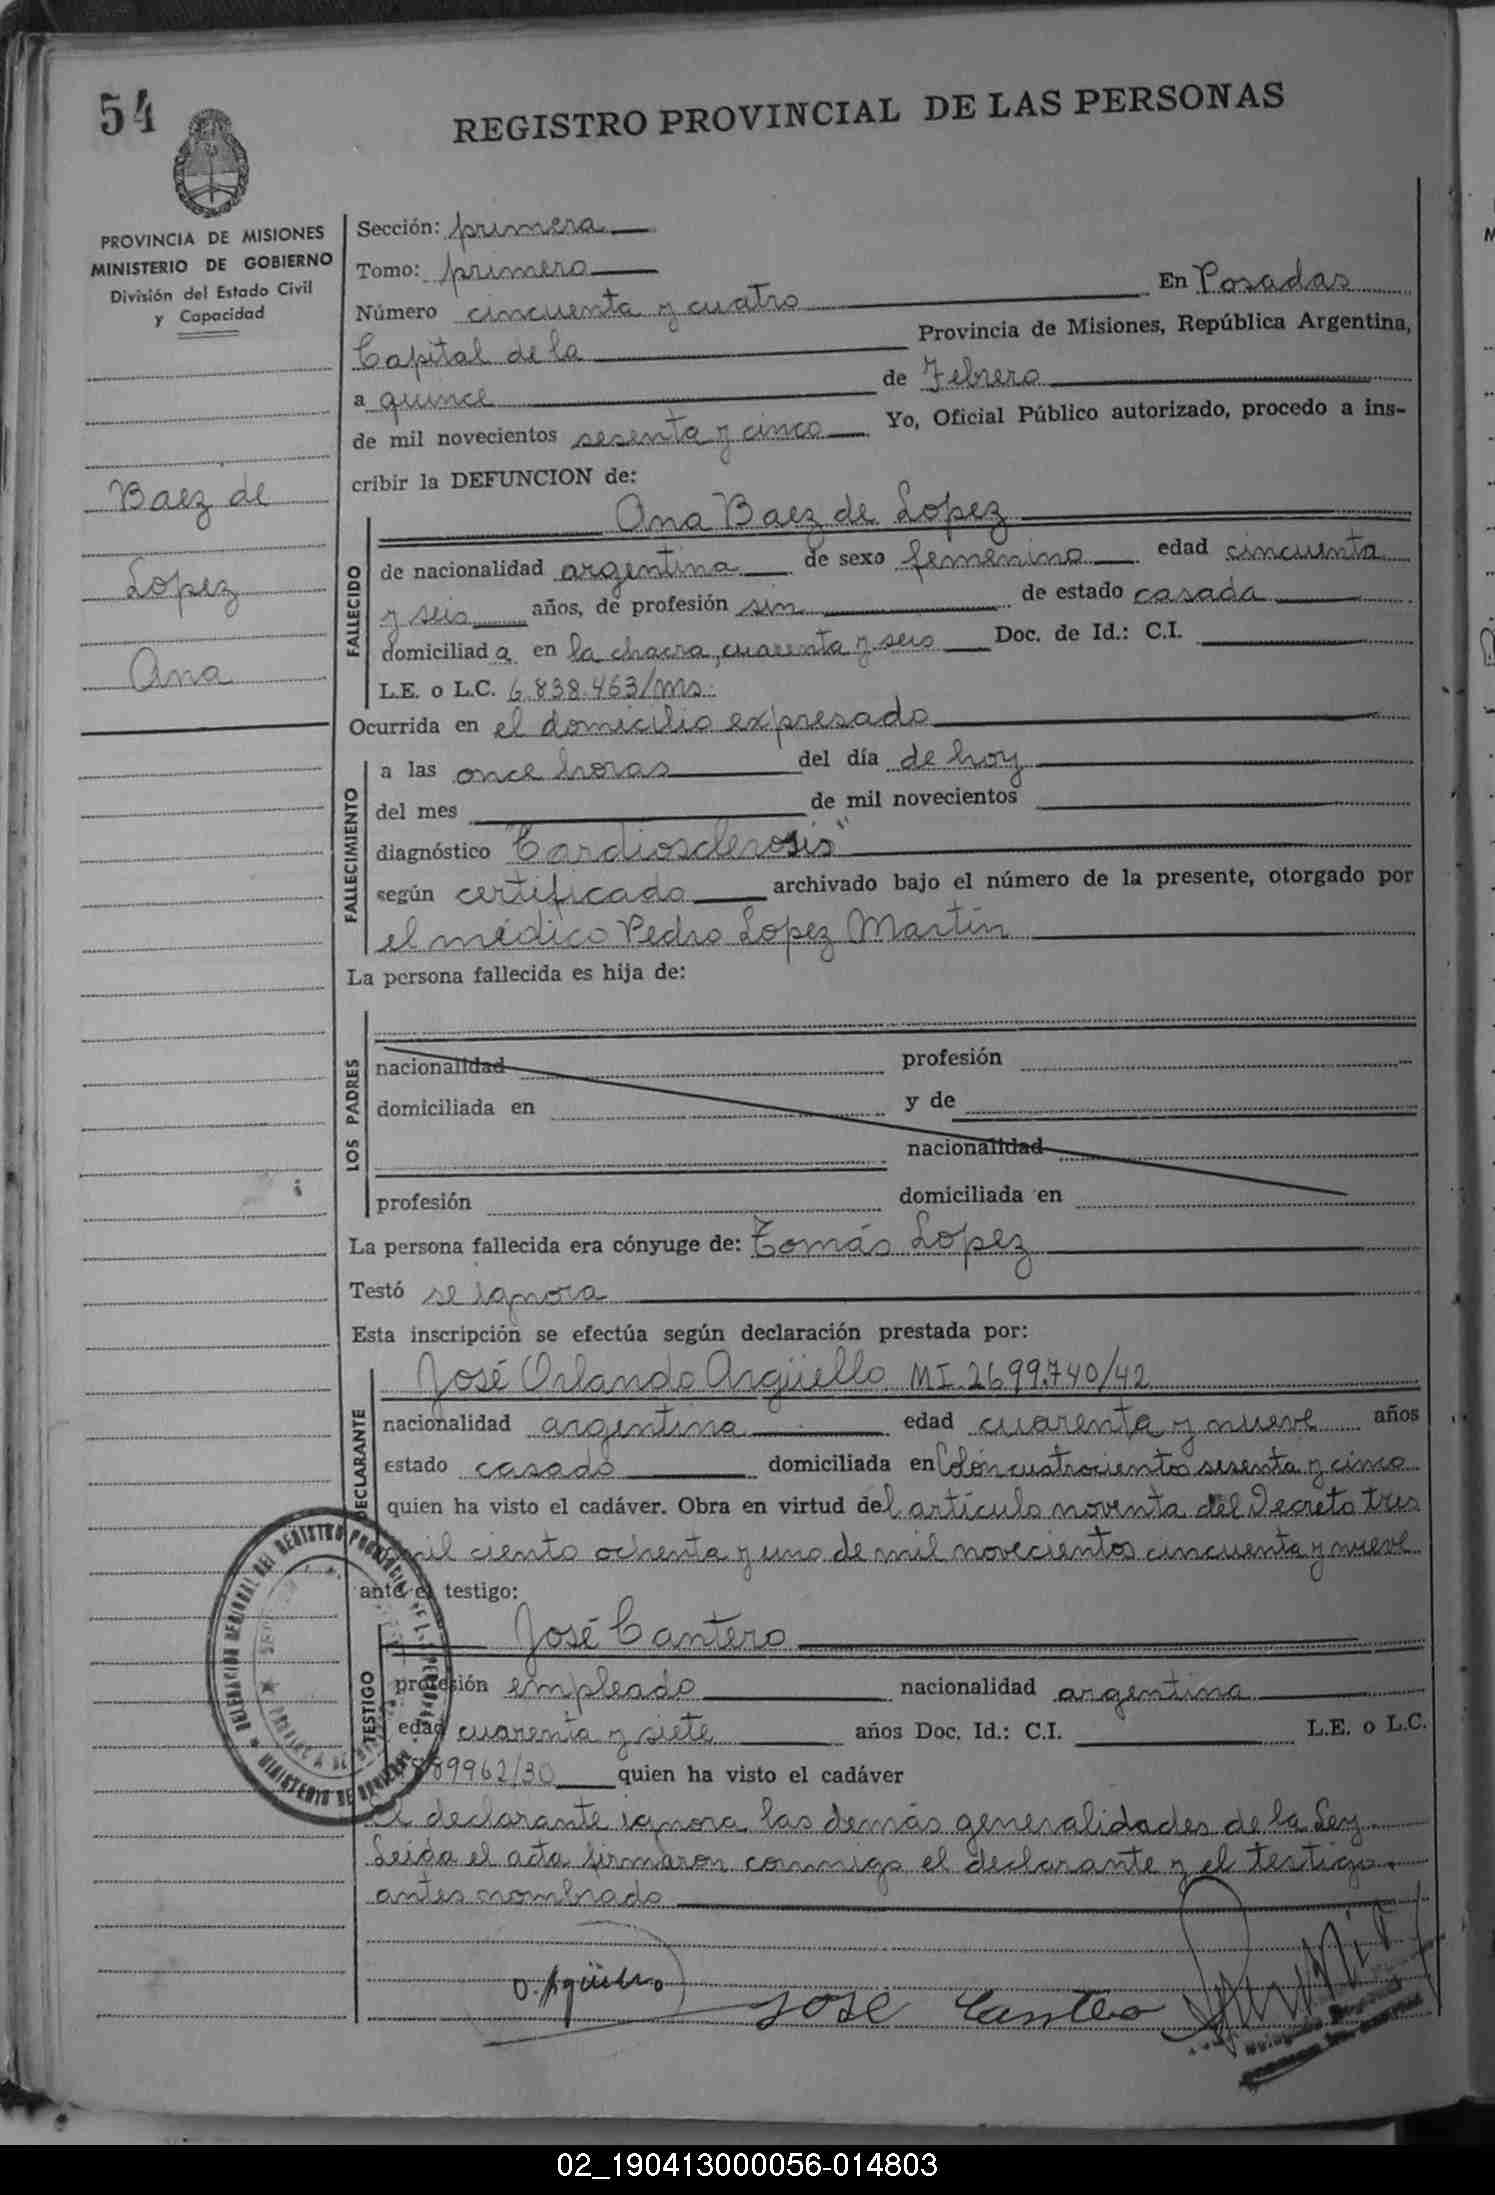 54
REGISTRO PROVINCIAL DE LAS PERSONAS
PROVINCIA DE MISIONES
MINISTERIO DE GOBIERNO
División del Estado Civil
y Capacidad
Baez de
Lopez
Ana
Sección: primera
Tomo: primero
Número cincuenta y cuatro En Posadas
Capital de la Provincia de Misiones, República Argentina,
a quince de Febrero
de mil novecientos sesenta y cinco Yo, Oficial Público autorizado, procedo a ins-
cribir la DEFUNCION de:
FALLECIDO
Ana Baez de Lopez
de nacionalidad argentina de sexo femenino edad cincuenta
y seis años, de profesión sin de estado casada
domiciliada en la chacra, cuarenta y seis Doc. de Id.: C.I.
L.E. o L.C. 6.838.463/ms.
Ocurrida en el domicilio expresado
FALLECIMIENTO
a las once horas del día de hoy
del mes de mil novecientos
diagnóstico "Cardiosclerosis"
según certificado archivado bajo el número de la presente, otorgado por
el médico Pedro Lopez Martin
La persona fallecida es hija de:
LOS PADRES
nacionalidad profesión
domiciliada en y de
nacionalidad
profesión domiciliada en
La persona fallecida era cónyuge de: Tomás Lopez
Testó se ignora
Esta inscripción se efectúa según declaración prestada por:
DECLARANTE
José Orlando Argüello MI.2699.740/42
nacionalidad argentina edad cuarenta y nueve años
estado casado domiciliada en Colón cuatrocientos sesenta y cinco
quien ha visto el cadáver. Obra en virtud del artículo noventa del Decreto tres
mil ciento ochenta y uno de mil novecientos cincuenta y nueve
ante el testigo:
TESTIGO
José Cantero
profesión empleado nacionalidad argentina
edad cuarenta y siete años Doc. Id.: C.I. L.E. o L.C.
889962/30 quien ha visto el cadáver
El declarante ignora las demás generalidades de la Ley
Leida el acta firmaron conmigo el declarante y el testigo
antes nombrado
DELEGACION REGIONAL DEL REGISTRO PROVINCIAL DE LAS PERSONAS
MINISTERIO DE GOBIERNO
O. Argüello
JOSE Cantero
02_190413000056-014803